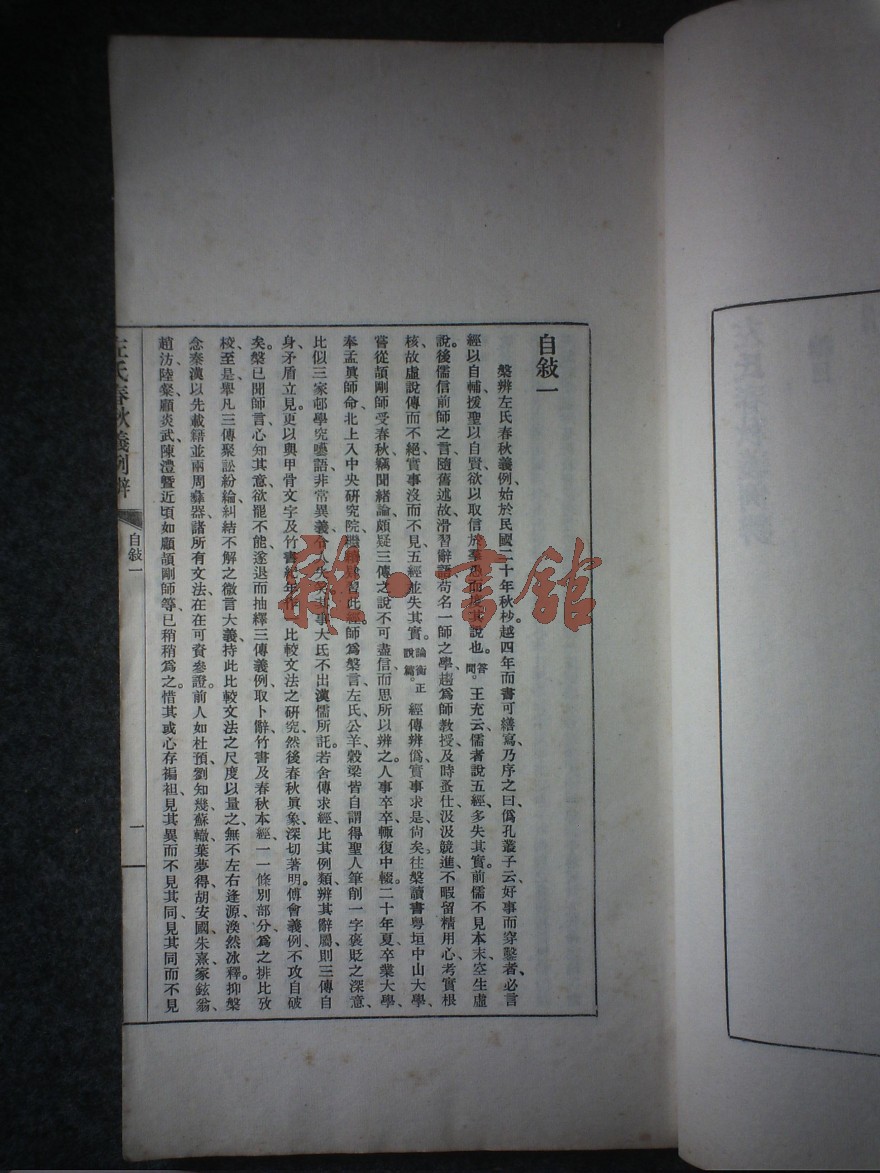 自敍一
槃辨左氏春秋義例、始於民國二十年秋杪。越四年而書可繕寫、乃序之曰、僞孔叢子云、好事而穿鑿者、必言
經以自輔、援聖以自賢、欲以取信於羣愚而度其說也。答問。王充云、儒者說五經、多失其實。前儒不見本末、空生虛
說。後儒信前師之言、隨舊述故、滑習辭語、苟名一師之學、趨爲師教授、及時蚤仕、汲汲競進、不暇留精用心、考實根
核。故虛說傳而不絕、實事沒而不見、五經並失其實。論衡正說篇。經傳辨僞、實事求是尙矣。往槃讀書粤垣中山大學、
嘗從頡剛師受春秋、竊聞緒論、頗疑三傳之說不可盡信、而思所以辨之。人事卒卒、輒復中輟。二十年夏、卒業大學、
奉孟眞師命、北上入中央研究院、習此經。師爲槃言、左氏公羊穀梁皆自謂得聖人筆削一字褒貶之深意、
比似三家邨學究囈語、非常異義、事大氐不出漢儒所託。若舍傳求經、比其例類、辨其辭屬、則三傳自
身矛盾立見。更以與甲骨文字及竹書紀年作比較文法之研究、然後春秋眞象、深切著明。傅會義例、不攻自破
矣。槃已聞師言、心知其意、欲罷不能、遂退而抽繹三傳義例、取卜辭竹書及春秋本經、一一條別部分、爲之排比攷
校。至是舉凡三傳聚訟紛綸糾結不解之微言大義、持此比較文法之尺度以量之、無不左右逢源、渙然冰釋。抑槃
念秦漢以先載籍、並兩周彝器諸所有文法、在在可資參證。前人如杜預、劉知幾、蘇轍、葉夢得、胡安國、朱熹、家鉉翁、
趙汸、陸粲、顧炎武、陳澧、曁近頃如顧頡剛師等、已稍稍爲之。惜其或心存褊袒、見其異而不見其同、見其同而不見
左氏春秋義例辨
自敍一
一
穀·書館